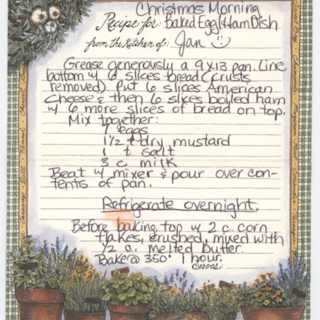 Christmas Morning
Recipe for: Baked Egg/Ham Dish
from the Kitchen of: Jan
Grease generously a 9x13 pan. Line
bottom w/ 6 slices bread (crusts
removed). Put 6 slices American
cheese & then 6 slices boiled ham
w/ 6 more slices of bread on top.
Mix together:
7 eggs
1½ t dry mustard
1 t salt
3 c. milk
Beat w/ mixer & pour over con-
tents of pan.
Refrigerate overnight.
Before baking top w/ 2 c. corn
flakes, crushed, mixed with
½ c. melted butter.
Bake @ 350° 1 hour.